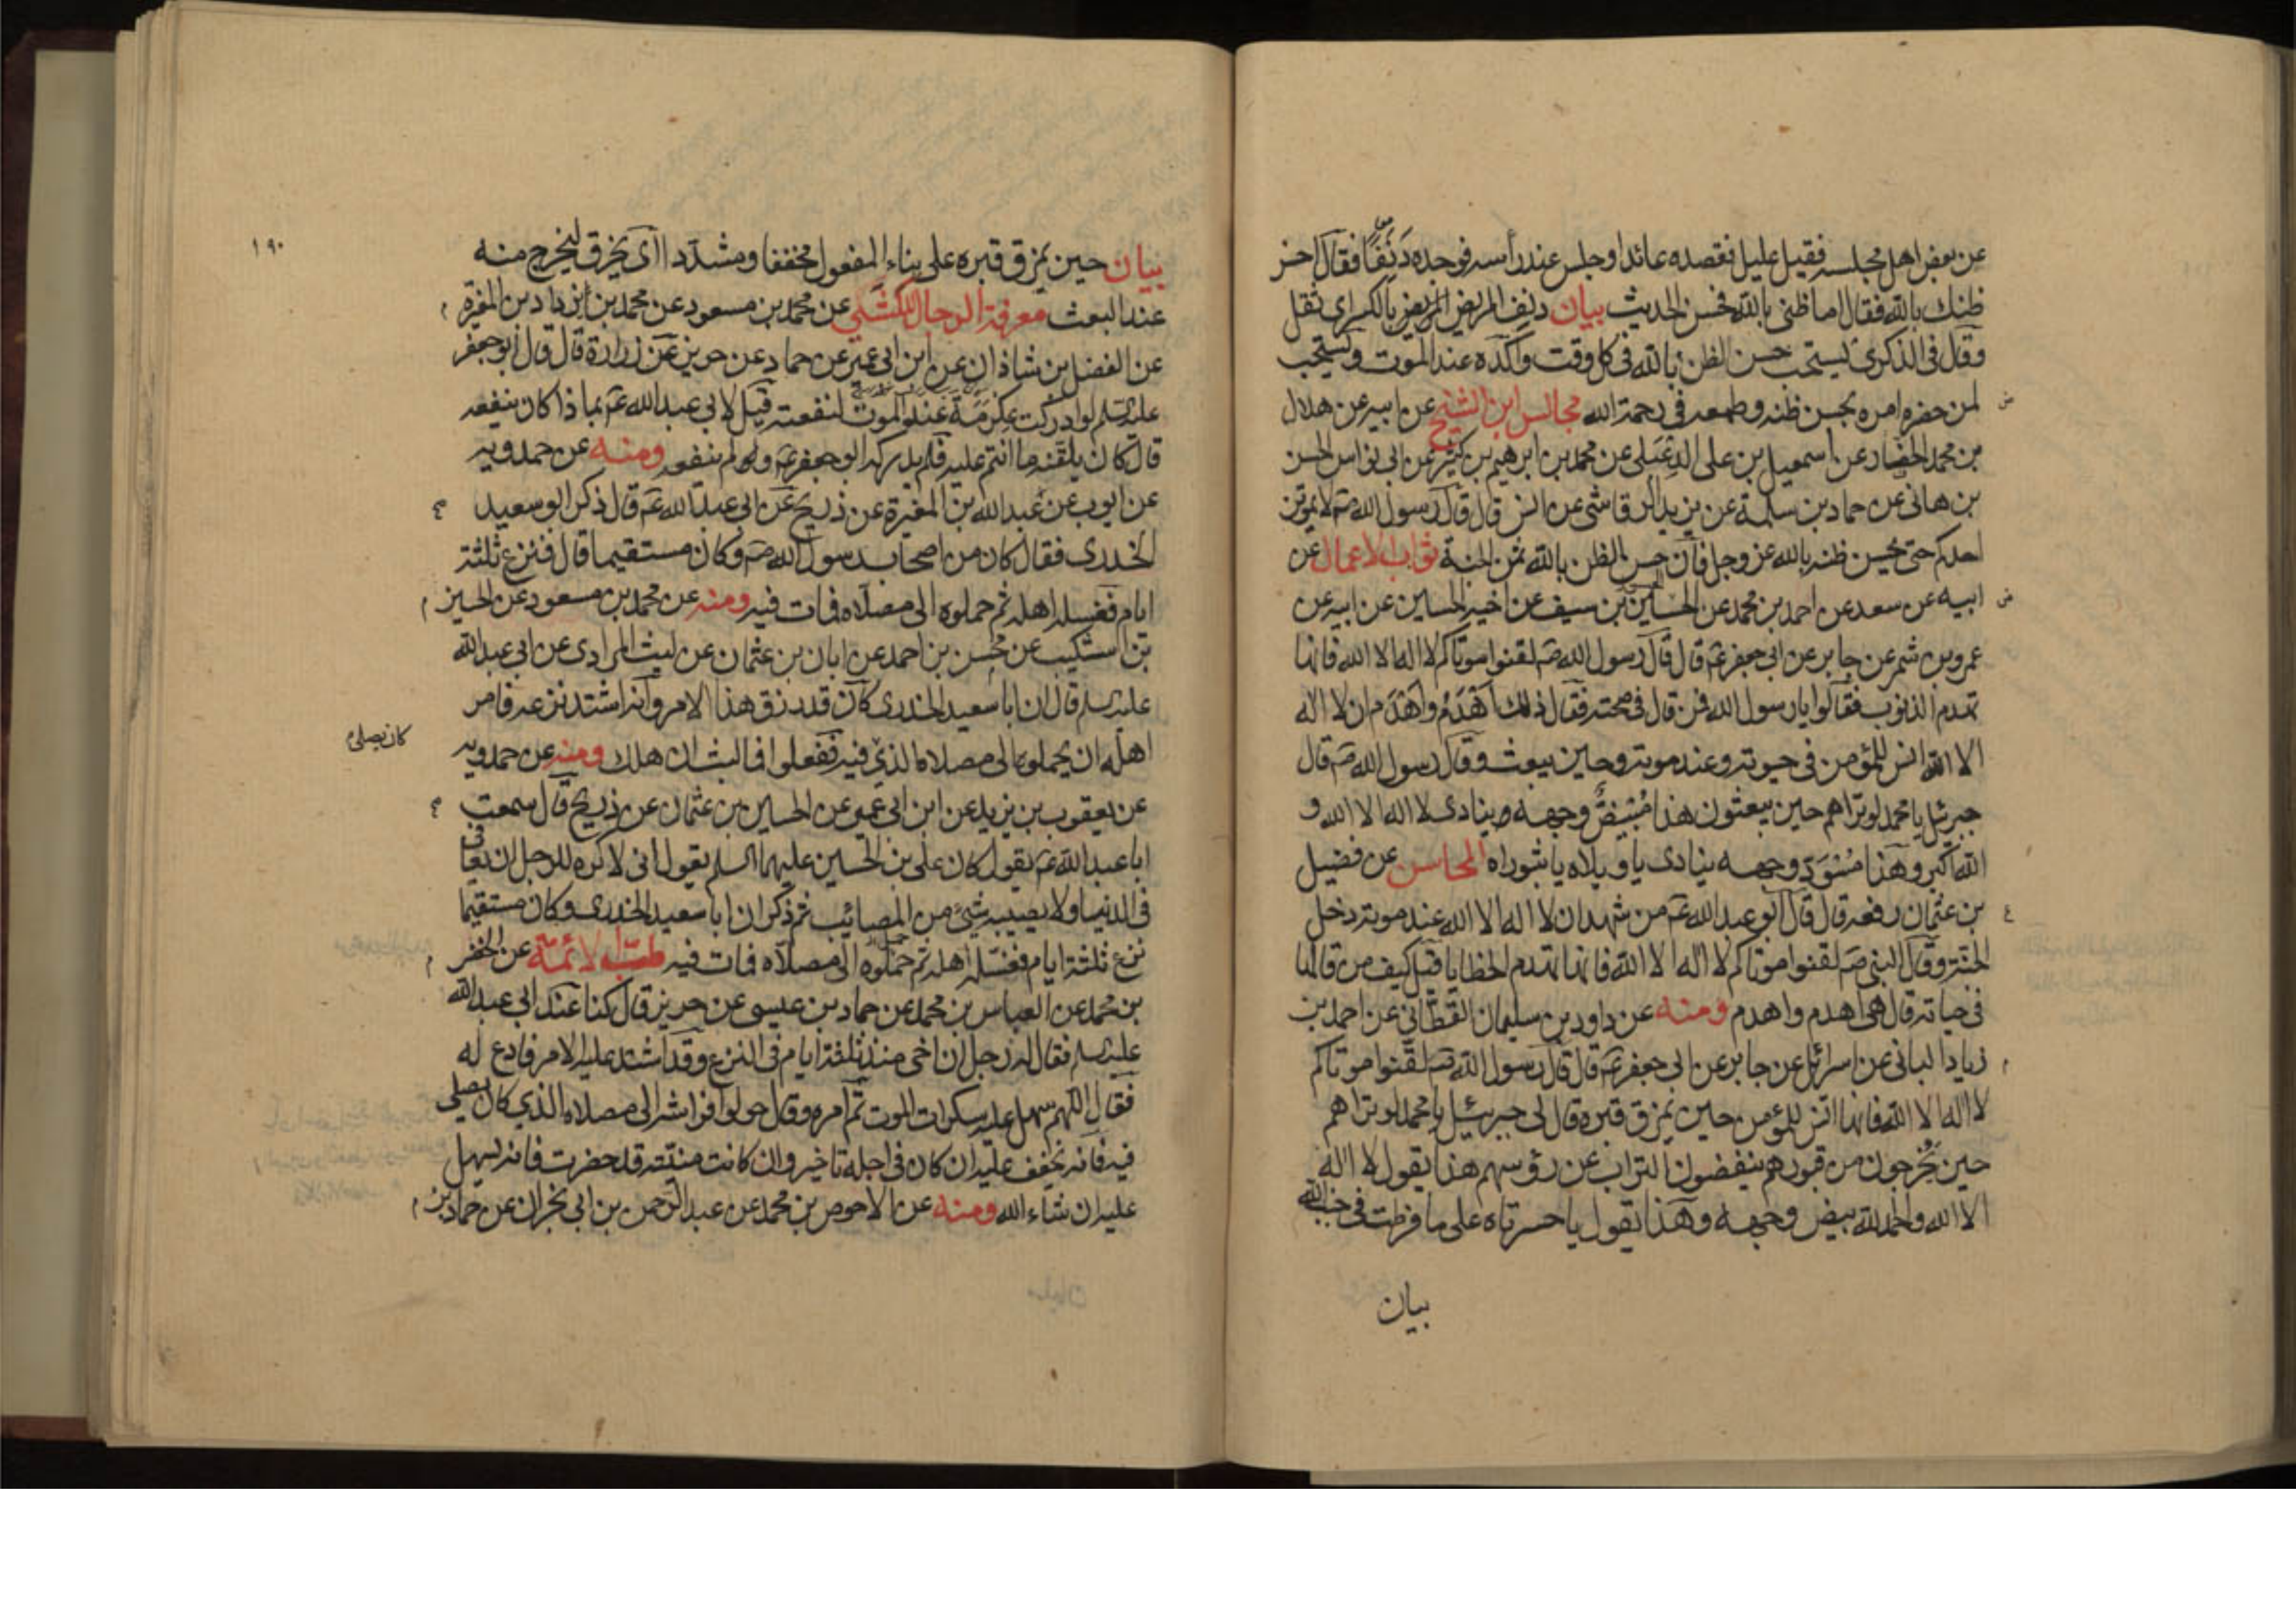 عن بعض اهل مجلسه فقيل عليل فقصده عائدا وجلس عند رأسه فوجده دَنَفًا فقال احسن
ظنك بالله فقال اما ظنى بالله فحسن الحديث بيان دنف المريض بالكسر اى ثقل
وقال فى الذكرى يستحب حسن الظن بالله فى كل وقت واكده عند الموت ويستحب
لمن حضره امره بحسن ظنه وطمعه فى رحمة الله مجالس ابن الشيخ عن ابيه عن هلال
بن محمد الحفار عن اسمعيل بن على الدعبلى عن محمد بن ابرهيم بن كثير عن ابى نواس الحسن
بن هانى عن حماد بن سلمة عن يزيد الرقاشى عن انس قال قال رسول الله صَ لا يموتن
احدكم حتى يحسن ظنه بالله عز وجل فان حسن الظن بالله ثمن الجنة ثواب الاعمال عن
ابيه عن سعد عن احمد بن محمد عن الحسن بن سيف عن اخيه الحسين عن ابيه عن
عمرو بن شمر عن جابر عن ابى جعفر عَ قال قال رسول الله صَ لقنوا موتاكم لا اله الا الله فانها
تهدم الذنوب فقالوا يا رسول الله فمن قال فى صحته فقال ذلك اَهْدَمُ واَهْدَم ان لا اله
الا الله انس للمؤمن فى حيوته وعند موته وحين يبعث وقال رسول الله صَ قال
جبرئيل يا محمد لو تراهم حين يبعثون هذا مُبْيَضٌّ وجهه وينادى لا اله الا الله و
الله اكبر وهذا مُسْوَدّ وجهه ينادى يا ويلاه يا ثبوراه المحاسن عن فضيل
بن عثمان رفعه قال قال ابو عبد الله عَ من شهد ان لا اله الا الله عند موته دخل
الجنة وقال النبى صَ لقنوا موتاكم لا اله الا الله فانها تهدم الخطايا قيل كيف من قالها
فى حياته قال هى اهدم واهدم ومنه عن داود بن سليمان القطانى عن احمد بن
زياد اليمانى عن اسرائيل عن جابر عن ابى جعفر عَ قال قال رسول الله صَ لقّنوا موتاكم
لا اله الا الله فانها انس للمؤمن حين يمزق قبره قال لى جبرئيل يا محمد لو تراهم
حين يخرجون من قبورهم ينفضون التراب عن رؤسهم هذا يقول لا اله
الا الله والحمد لله بيض وجهه وهذا يقول يا حسرتاه على ما فرطت فى جنب الله
بيان
١٩٠
بيان حين يمزق قبره على بناء المفعول مخففا ومشدّدا اى يخرق ليخرج منه
عند البعث معرفة الرجال للكشّى عن محمد بن مسعود عن محمد بن ازداد بن المغيرة
عن الفضل بن شاذان عن ابن ابى عمير عن حماد عن حريز عن زرارة قال قال ابو جعفر
عليه السلم لو ادركت عكرمة عند الموت لنفعته قيل لابى عبد الله عَ بماذا كان ينفعه
قال كان يلقنه ما انتم عليه فلم يدركه ابو جعفر عَ ولم ينفعه ومنه عن حمدويه
عن ايوب عن عبد الله بن المغيرة عن ذريح عن ابى عبد الله عَ قال ذكر ابو سعيد
الخدرى فقال كان من اصحاب رسول الله صَ وكان مستقيما قال فنزع ثلثة
ايام فغسله اهله ثم حملوه الى مصلاه فمات فيه ومنه عن محمد بن مسعود عن الحسين
بن اشكيب عن محسن بن احمد عن ابان بن عثمان عن ليث المرادى عن ابى عبد الله
عليه السلم قال ان ابا سعيد الخدرى كان قد رزق هذا الامر وانه اشتد نزعه فامر
كان يصلى
اهله ان يحملوه الى مصلاه الذى فيه ففعلوا فما لبث ان هلك ومنه عن حمدويه
عن يعقوب بن يزيد عن ابن ابى عمير عن الحسين بن عثمان عن ذريح قال سمعت
ابا عبد الله عَ يقول كان على بن الحسين عليهما السلم يقول انى لاكره للرجل ان يعافى
فى الدنيا ولا يصيبه شىء من المصائب ثم ذكر ان ابا سعيد الخدرى وكان مستقيما
نزع ثلثة ايام فغسّله اهله ثم حملوه الى مصلاه فمات فيه طبّ الائمّة عن الخضر
بن محمد عن العباس بن محمد عن حماد بن عيسى عن حريز قال كنا عند ابى عبد الله
عليه السلم فقال له رجل ان اخى منذ ثلثة ايام فى النزع وقد اشتد عليه الامر فادع له
فقال اللهم سهل عليه سكرات الموت ثم امره وقال حولوا فراشه الى مصلاه الذى كان يصلى
فيه فانه يخفف عليه ان كان فى اجله تاخير وان كانت منيّته قد حضرت فانه يسهل
عليه ان شاء الله ومنه عن الاحوص بن محمد عن عبد الرحمن بن ابى نجران عن حماد بن